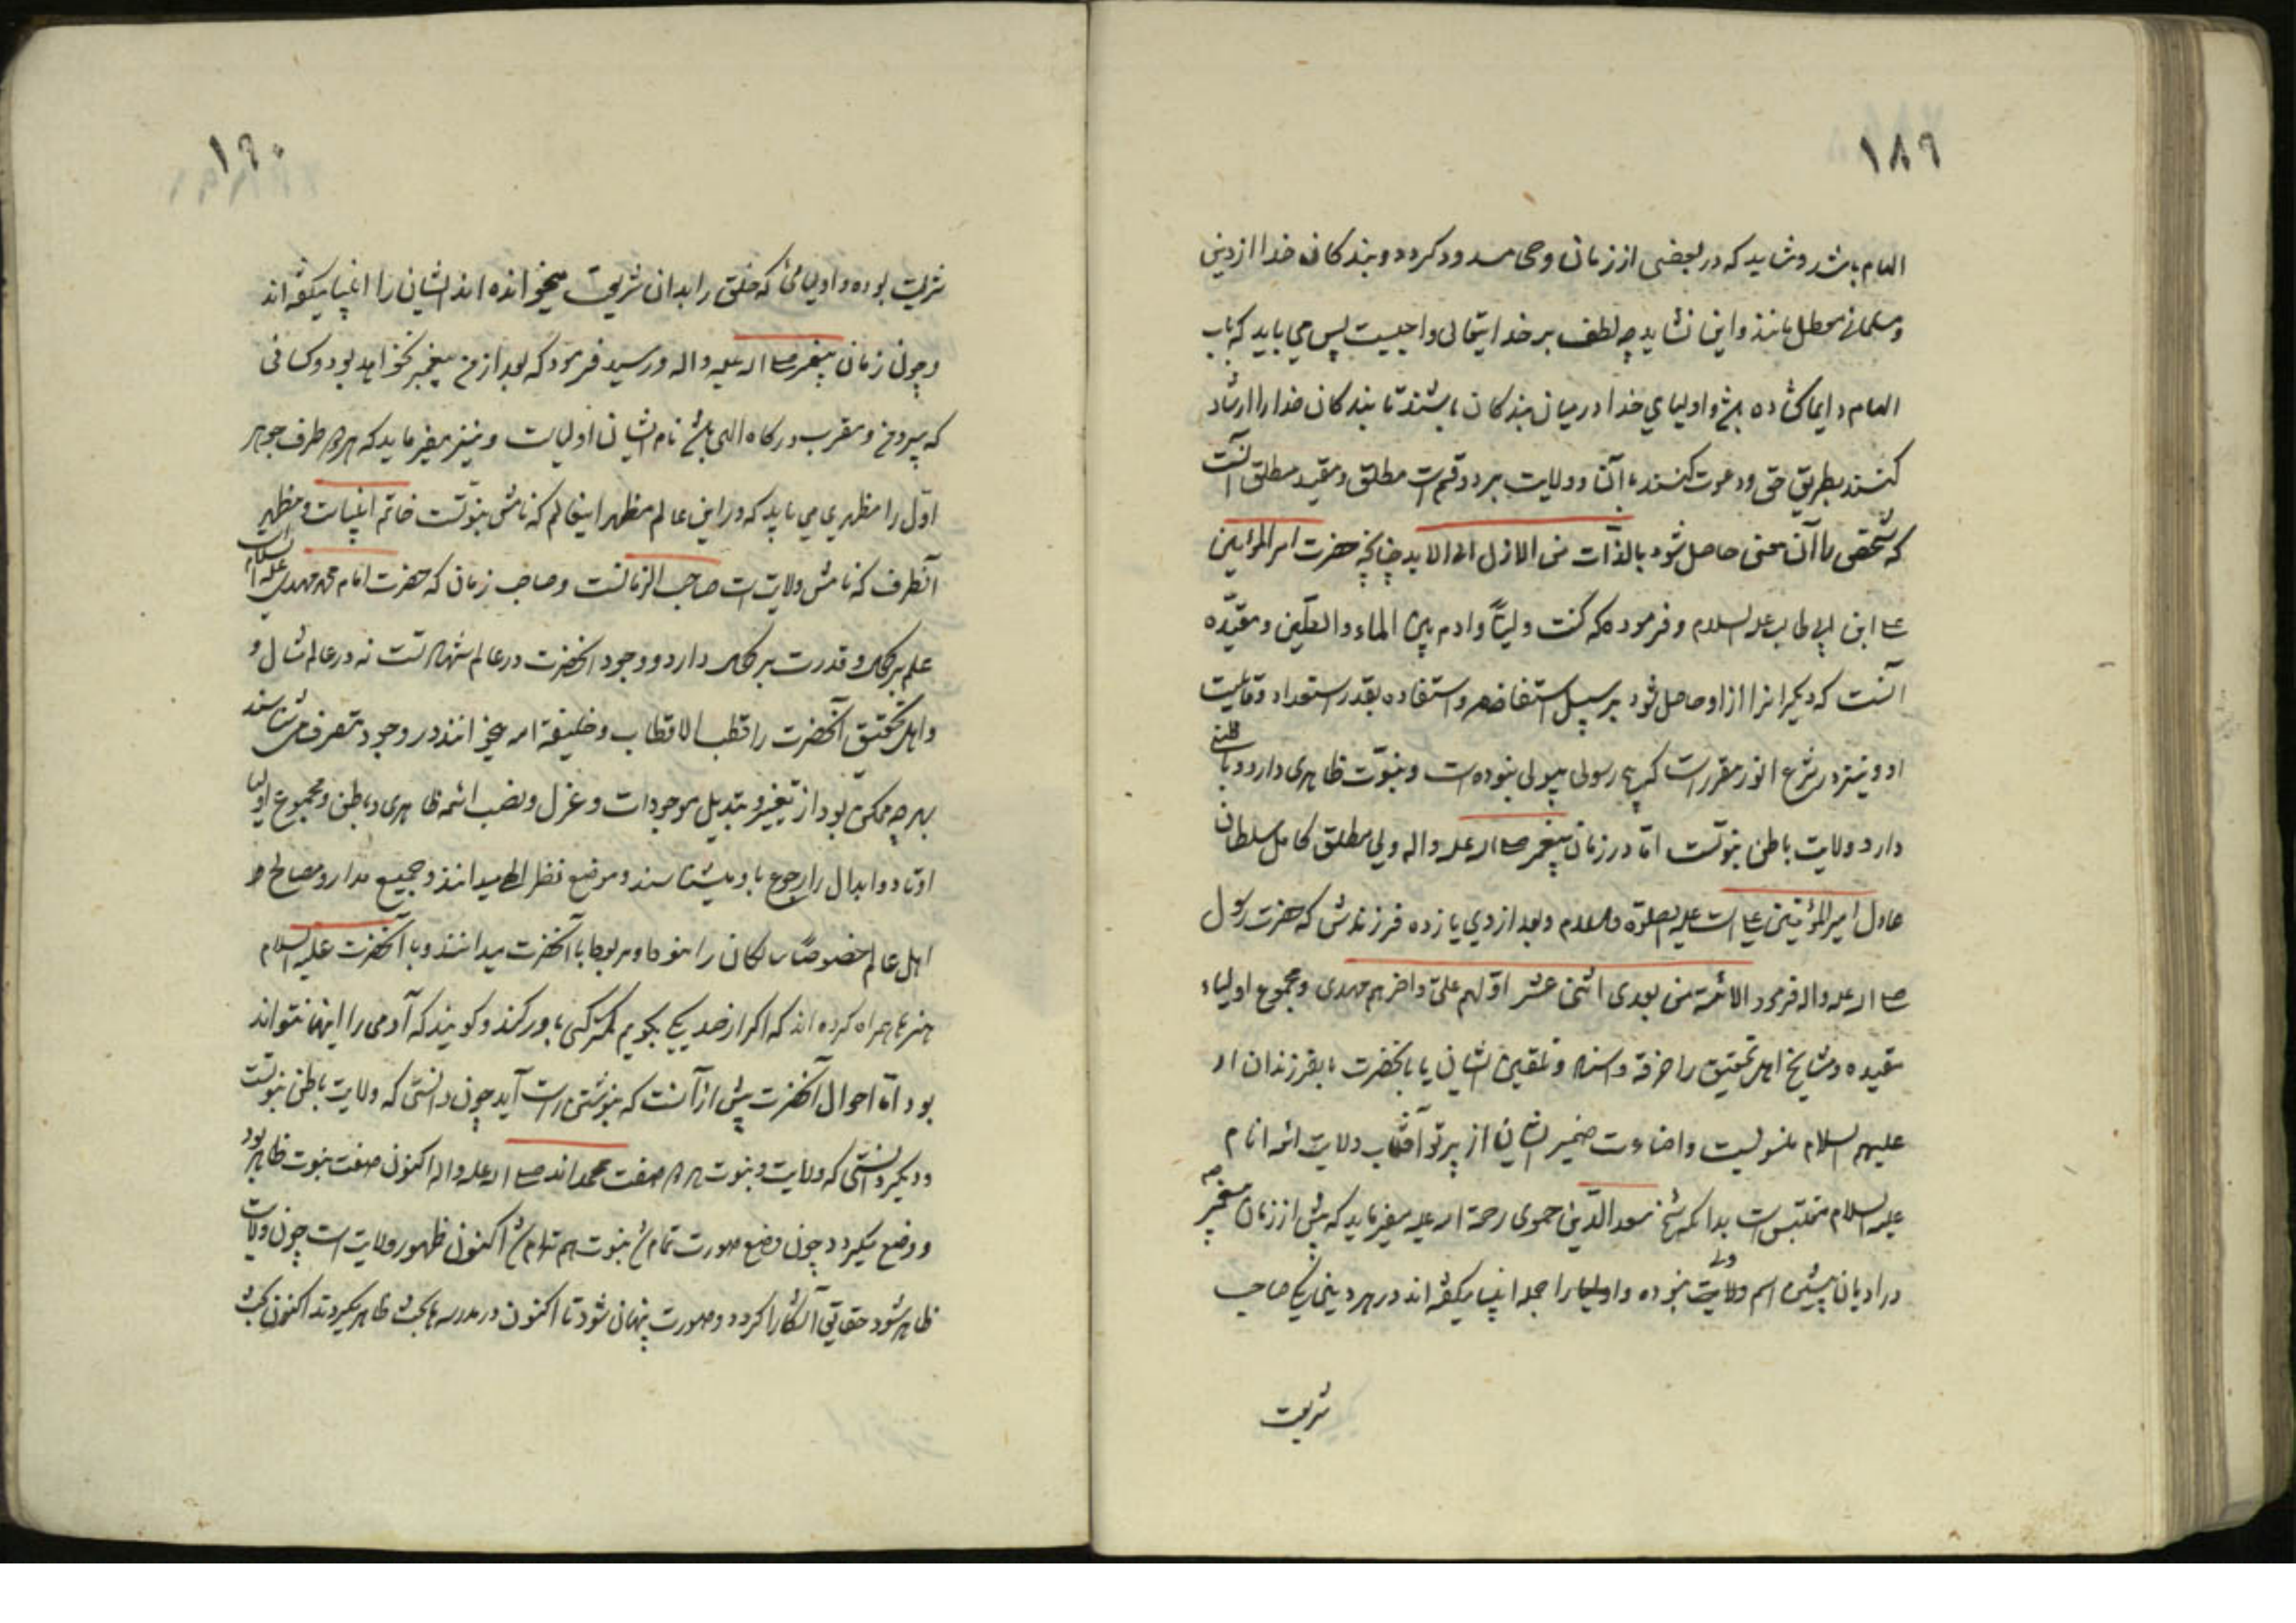 ١٨٩
الهام باشد و شاید که در بعضی از زمان وحی مسدود کردد و بندکان خدا از دین
و مسلمانی معطل مانند و این نشاید چه لطف بر خدایتعالی واجبست پس می باید که باب
الهام دایما کشاده باشد و اولیای خدا در میان بندکان باشند تا بندکان خدا را ارشاد
کنند بطریق حق و دعوت کنند با آن و ولایت بر دو قسم است مطلق و مقید مطلق آنست
که شخصی را آن معنی حاصل شود بالذات من الازل الی الابد چنانچه حضرت امیر المؤمنین
علی ابن ابی طالب علیه السلام و فرموده که کنت ولیّاً و ادم بین الماء و الطین و مقیده
آنست که دیکرانرا از او حاصل شود بر سبیل استفاضه و استفاده بقدر استعداد و قابلیت
او و نیز در شرع انور مقرر است که هیچ رسولی بیولی نبوده است و نبوت ظاهری دارد و باطنی
دارد و ولایت باطن نبوتست اما در زمان پیغمبر صلی الله علیه و اله ولی مطلق کامل سلطان
عادل امیر المؤمنین علی است علیه الصلوة والسلام و بعد از وی یازده فرزندش که حضرت رسول
صلی الله علیه و اله فرمود الائمة من بعدی اثنی عشر اولهم علی و اخرهم مهدی و مجموع اولیاء
مقیده و مشایخ اهل تحقیق را خرقه و اسناد و تلقین ایشان یا بانحضرت یا بفرزندان او
علیهم السلام منسوبست و اضاءت ضمیر ایشان از پرتو آفتاب ولایت ائمه انام
علیه السلام مقتبس است بدانکه شیخ سعد الدین حموی رحمة الله علیه میفرماید که پیش از زمان پیغمبر ص
در ادیان پیشین اسم ولی نبوده و اولیا را جمله انبیا میکفته اند در هر دینی یکی صاحب
شریعت
١٩٠
شریعت بوده و اولیائی که خلق را بدان شریعت میخوانده اند ایشان را انبیا میکفته اند
و چون زمان پیغمبر صلی الله علیه و اله در رسید فرمود که بعد از من پیغمبر نخواهد بود و کسانی
که پیرو من و مقرب درکاه الهی باشند نام ایشان اولیاست و نیز میفرماید که هر دو طرف جوهر
اول را مظهری می باید که در این عالم مظهر اینعالم که نامش نبوتست خاتم انبیاست و مظهر
آنطرف که نامش ولایت است صاحب الزمانست و صاحب زمان که حضرت امام محمد مهدی علیه السلام است
علم بر کمال و قدرت بر کمال دارد و وجود انحضرت در عالم شهادتست نه در عالم مثال و
و اهل تحقیق آنحضرت را قطب الاقطاب و خلیفة الله میخوانند در وجود متصرفش شناسند
بهر چه ممکن بود از تغییر و تبدیل موجودات و عزل و نصب ائمه ظاهری و باطن و مجموع اولیا
اوتاد و ابدال را رجوع باو میشناسند و موضع نظر الله میدانند و جمیع مدار و مصالح
اهل عالم خصوصاً سالکان را منوط و مربوط با آنحضرت میدانند و با آنحضرت علیه السلام
هنرها همراه کرده اند که اکر از صد یکی بکویم کمتر کسی باور کند و کویند که آدمی را اینها نتواند
بود اما احوال آنحضرت پیش از آنست که بنوشتن راست آید چون دانستی که ولایت باطن نبوتست
و دیکر دانستی که ولایت و نبوت هر دو صفت محمد اند صلی الله علیه و اله اکنون صفت نبوت ظاهر بود
و وضع میکرد و چون وضع صورت تمام شد نبوت هم تمام شد اکنون ظهور ولایت است چون ولایت
ظاهر شود حقایق آشکارا کردد و صورت پنهان شود تا اکنون در مدرسه ها بحث ظاهر میکردند اکنون بحث